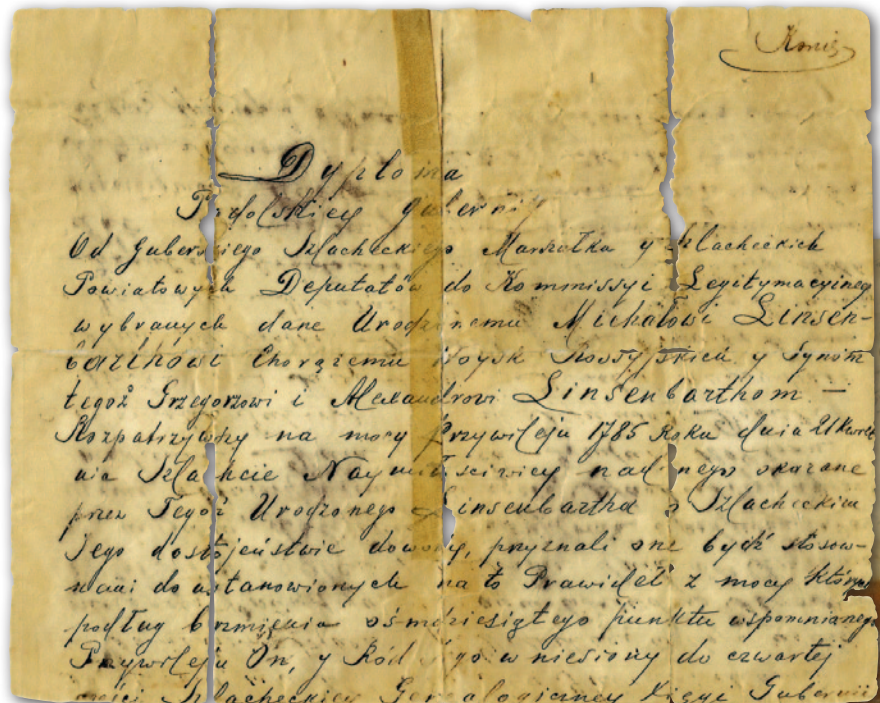 Kopia
Dyploma
Podolskiey Gubernii
Od Guberskiego Szlacheckiego Marszałka y Szlacheckich
Powiatowych Deputatów do Kommissyi Legitymacyiney
wybranych dane Urodzonemu Michałowi Linsen-
barthowi Chorążemu Woysk Rossyyskich y synom
tegoż Grzegorzowi i Alexandrowi Linsenbarthom —
Rozpatrzywszy na mocy Przywileju 1785 Roku dnia 21 Kwiet
nia Szlachcie Naymiłościwiey nadanego okazane
przez Tegoż Urodzonego Linsenbartha o Szlacheckim
Jego dostojeństwie dowody, przyznali one bydź stosow-
nemi do ustanowionych na to Prawideł z mocy których
podług brzmienia ośmdziesiątego punktu wspomnianego
Przywileju On, y Ród Jego wniesiony do czwartej
części Szlacheckiey Genealogiczney Xięgi Gubernii